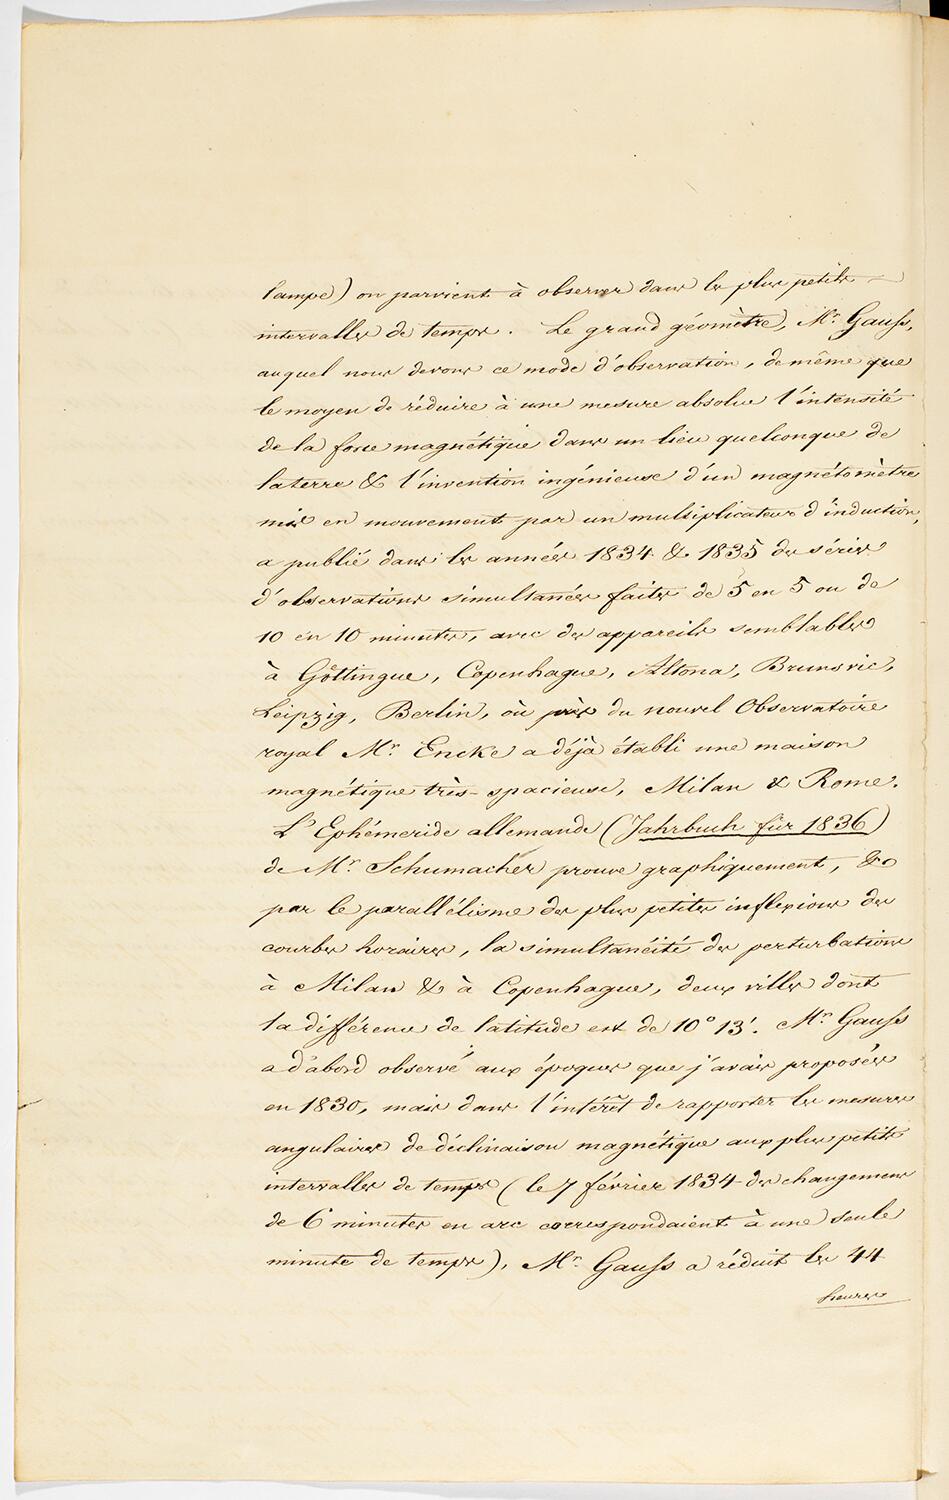 lampe) on parvient à observer dans les plus petits
intervalles de temps. Le grand géomètre, Mr. Gauss,
auquel nous devons ce mode d'observation, de même que
le moyen de réduire à une mesure absolue l'intensité
de la force magnétique dans un lieu quelconque de
la terre & l'invention ingénieuse d'un magnétomètre
mis en mouvement par un multiplicateur d'induction,
a publié dans les années 1834 & 1835 des séries
d'observations simultanées faites de 5 en 5 ou de
10 en 10 minutes, avec des appareils semblables
à Göttingue, Copenhague, Altona, Brunsvic,
Leipzig, Berlin, où près du nouvel Observatoire
royal Mr. Encke a déjà établi une maison
magnétique très-spacieuse, Milan & Rome.
L'Ephéméride allemande (Jahrbuch für 1836)
de Mr. Schumacher prouve graphiquement, &
par le parallélisme des plus petites inflexions des
courbes horaires, la simultanéité des perturbations
à Milan & à Copenhague, deux villes dont
la différence de latitude est de 10° 13'. Mr. Gauss
a d'abord observé aux époques que j'avais proposées
en 1830, mais dans l'intérêt de rapporter les mesures
angulaires de déclinaison magnétique aux plus petits
intervalles de temps (le 7 février 1834 des changemens
de 6 minutes en arc correspondaient à une seule
minute de temps), Mr. Gauss a réduit les 44
heures